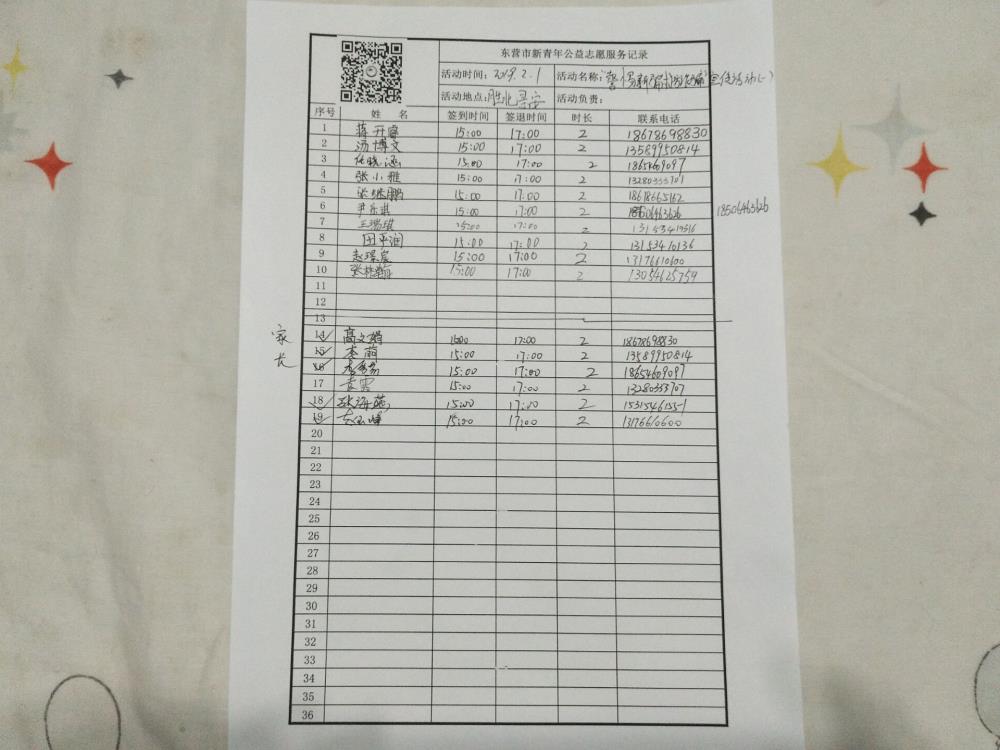 东营市新青年公益志愿服务记录
活动时间：2019.2.1 活动名称：警惕新 宣传活动(一)
活动地点：胜北 活动负责：
序号 姓 名 签到时间 签退时间 时长 联系电话
1 蒋开睿 15:00 17:00 2 18678698830
2 汤博文 15:00 17:00 2 13589950814
3 任晓涵 15:00 17:00 2 18654609097
4 张小雅 15:00 17:00 2 13280333707
5 张继鹏 15:00 17:00 2 18678665162
6 尹乐琪 15:00 17:00 2 18506463626 18506463626
7 王瑞琪 15:00 17:00 2
8 田平润 15:00 17:00 2 13153410136
9 赵璟宸 15:00 17:00 2 13176610600
10 张桂翰 15:00 17:00 2 13054625759
11
12
13
家长
14 高文娟 15:00 17:00 2 18678698830
15 李萌 15:00 17:00 2 13589950814
16 李秀芬 15:00 17:00 2 18654609097
17 15:00 17:00 2 13280333707
18 张海燕 15:00 17:00 2 15315461551
19 15:00 17:00 2 13176610600
20
21
22
23
24
25
26
27
28
29
30
31
32
33
34
35
36